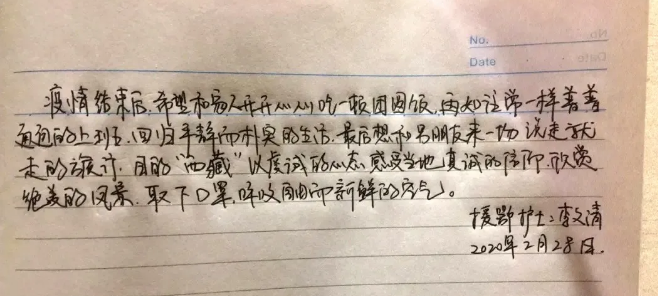 No.
Date
疫情结束后，希望和家人开开心心吃一顿团圆饭，再如往常一样普普
通通的上班，回归平静而朴实的生活。最后想和男朋友来一场说走就
走的旅行，目的“西藏”以虔诚的心态，感受当地真诚的信仰，欣赏
绝美的风景，取下口罩，呼吸自由而新鲜的空气。
援鄂护士：李文清
2020年2月28日.